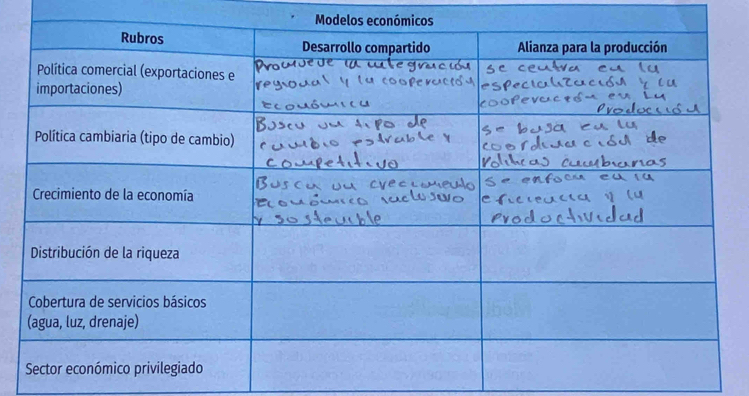 Modelos económicos
Rubros
Desarrollo compartido
Alianza para la producción
Política comercial (exportaciones e
importaciones)
Promueve la integración
regional y la cooperación
económica
se centra en la
especialización y la
cooperación en la
Producción
Política cambiaria (tipo de cambio)
Busca un tipo de
cambio estrable y
competitivo
se basa en la
coordinación de
politicas cambiarias
Crecimiento de la economía
Busca un crecimiento
económico inclusivo
y sostenible
se enfoca en la
eficiencia y la
productividad
Distribución de la riqueza
Cobertura de servicios básicos
(agua, luz, drenaje)
Sector económico privilegiado